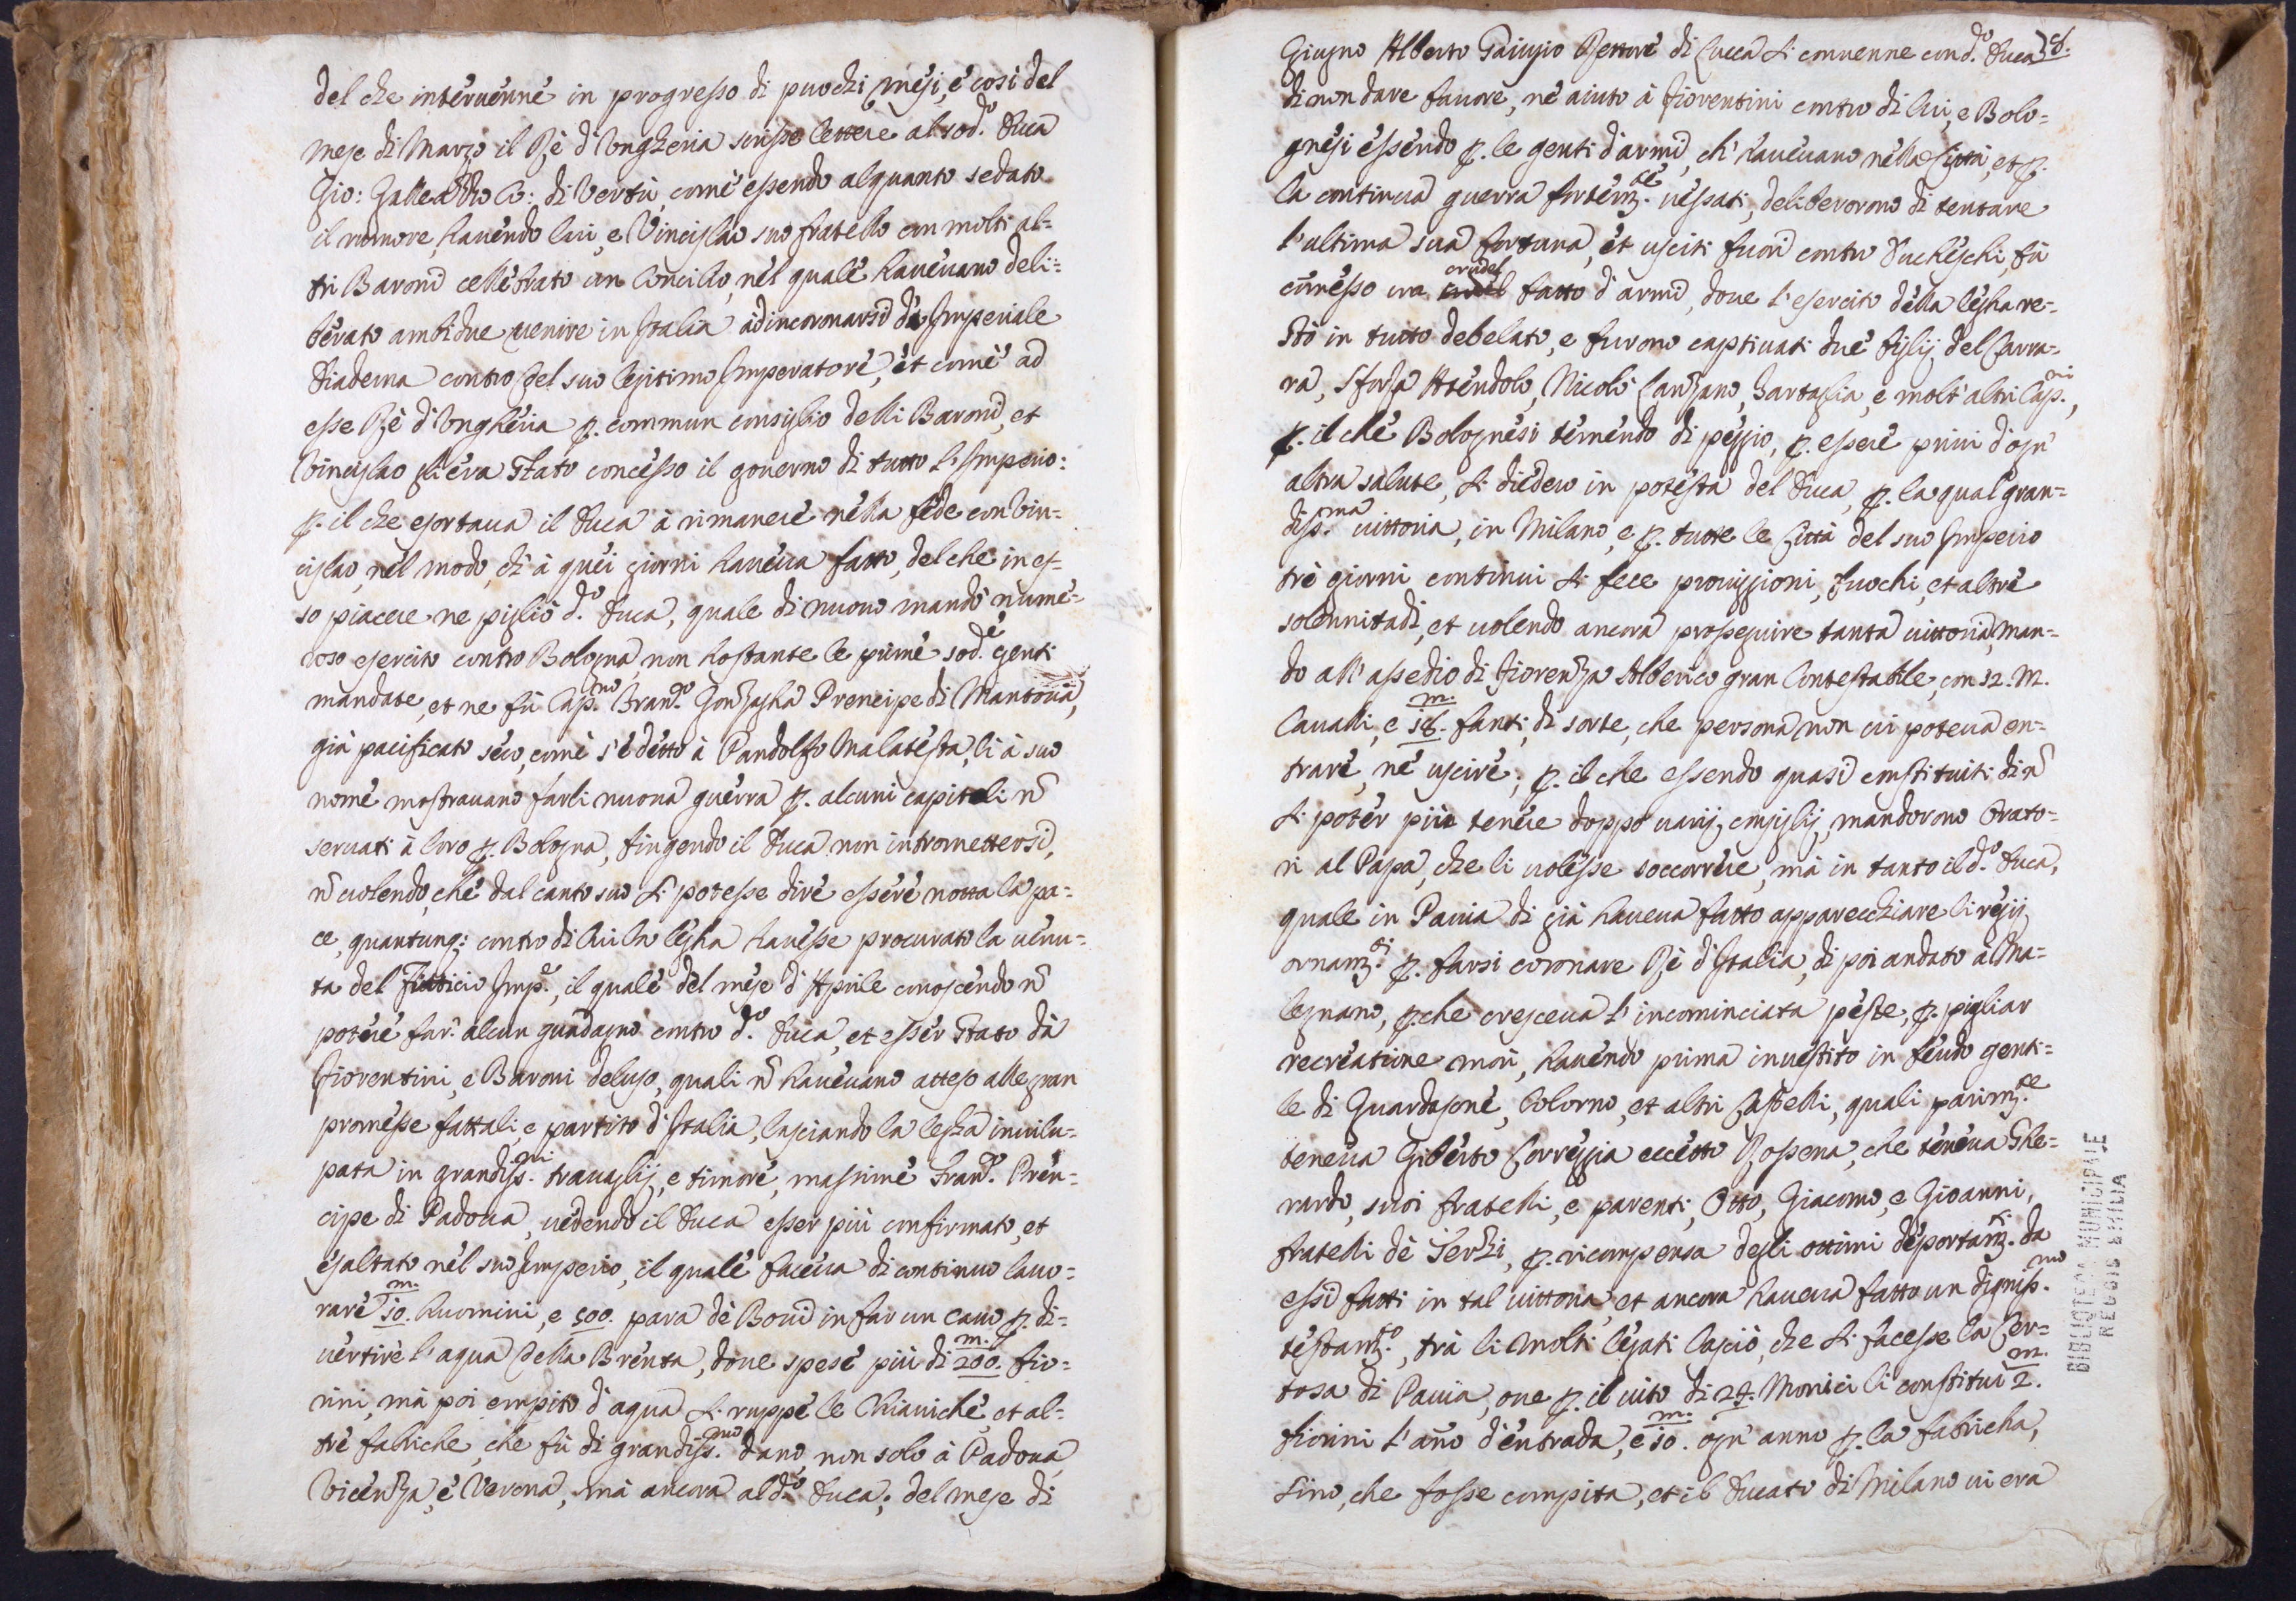 del che interuenne in progresso di puochi mesi, e così del
mese di Marzo il Rè d'Ongheria scrisse lettere al sod.º Duca
Gio: Galleazzo Co: di Vertù, come essendo alquanto sedato
il rumore, hauendo lui, e Vincislao suo fratello con molti al=
tri Baroni cellebrato un Concilio, nel quale haueuano deli=
berato ambidue uenire in Italia ad incoronarsi de Imperiale
Diadema contro del suo legitimo Imperatore, et come ad
esse Rè d'Ongheria p. commun consiglio delli Baroni, et
Vincislao li era stato concesso il gouerno di tutto l'Imperio:
p. il che esortaua il Duca à rimanere nella fede con Vin=
cislao, nel modo, ch'à quei giorni haueua fatto, del che in es=
so piacere ne pigliò d.º Duca, quale di nuouo mandò nume=
roso esercito contro Bologna, non hostante le prime sod.e genti
mandate, et ne fù Cap.no Fran.co Gonzagha Prencipe di Mantoua,
già pacificato seco, come s'è detto à Pandolfo Malatesta, li à suo
nome mostrauano farli nuoua guerra p. alcuni capitoli nõ
seruati à loro p. Bologna, fingendo il Duca non intromettersi,
nõ uolendo, che dal canto suo si potesse dire essere rotta la pa=
ce, quantunq; contro di lui la legha hauesse procurato la uenu=
ta del fitticio Imp.e, il quale del mese d'Aprile conoscendo nõ
potere far alcun guadagno contro d.º Duca, et esser stato dà
Fiorentini, e Baroni deluso, quali nõ haueuano atteso alle gran
promesse fattali, e partito d'Italia, lasciando la legha inuilu=
pata in grandiss.mi trauaglij, e timore, massime Fran.co Pren=
cipe di Padoua, uedendo il Duca esser più confirmato, et
esaltato nel suo Imperio, il quale faceua di continuo lauo=
rare 10.m. huomini, e 500. para dè Boui in far un cauo p. di=
uertire l'aqua della Brenta, doue spese più di 200.m. fio=
rini, mà poi empito d'aqua si ruppe le Chiauiche, et al=
tre fabriche, che fù di grandiss.mo dano, non solo à Padoua,
Vicenza, e Verona, mà ancora al d.º Duca; del mese di
Giugno Alberto Rettore di Lucca si conuenne con d.º Duca 38.
di non dare fauore, nè aiuto à Fiorentini contro di lui, e Bolo=
gnesi essendo p. le genti d'armi, ch'haueuano nella Città, et p.
la continua guerra fortem.te uessati, deliberorono di tentare
l'ultima sua fortuna, et usciti fuori contro Ducheschi, fù
cõmesso un crudel fatto d'armi, doue l'esercito della legha re=
stò in tutto debelato, e furono captiuati due figlij del Carra=
ra, Sforza Atendolo, Nicolò Tartaglia, e molt'altri Cap.ni,
p. il che Bolognesi temendo di peggio, p. essere priui d'ogn'
altra salute, si diedero in potestà del Duca, p. la qual gran=
diss.ma uittoria, in Milano, e p. tutte le Città del suo Imperio
trè giorni continui si fece processioni, fuochi, et altre
solennitadi, et uolendo ancora proseguire tanta uittoria, man=
do all'assedio di Fiorenza Alberico gran Contestabile, con 12. M.
Caualli, e 18.m. fanti, di sorte, che persona non ui poteua en=
trare, nè uscire; p. il che essendo quasi constituiti di nõ
si poter più tenere doppo uarij consiglij, mandorono Orato=
ri al Papa, che li uolesse soccorrere, mà in tanto il d.º Duca,
quale in Pauia di già haueua fatto apparecchiare li regij
ornam.ti p. farsi coronare Rè d'Italia, di poi andato à Ma=
legnano, p.che cresceua l'incominciata peste, p. pigliar
recreatione morì, hauendo prima inuestito in feudo genti=
le di Guardasone, Colorno, et altri Castelli, quali parim.te
teneua Giberto Correggia eccetto Rossena, che teneua Ghe=
rardo, suoi fratelli, e parenti, Otto, Giacomo, e Gioanni,
fratelli dè Terzi, p. ricompensa degli ottimi deportam.ti da
essi fatti in tal uittoria, et ancora haueua fatto un digniss.mo
testam.to, trà li molti legati lasciò, che si facesse la Cer=
tosa di Pauia, oue p. il uito di 24. Monici li constituì 2.m.
fiorini l'año d'entrada, e 10.m. ogn'anno p. la fabricha,
sino, che fosse compita, et il Ducato di Milano ui era
BIBLIOTECA MUNICIPALE
REGGIO EMILIA